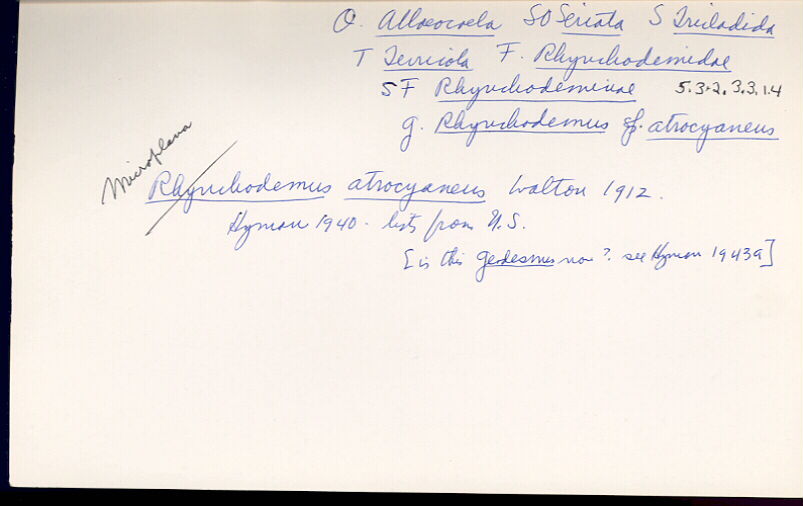 O. Alloeocoela SO Seriata S Tricladida
T Terricola F. Rhynchodemidae
SF Rhynchodeminae 5.3.2.3.3.1.4
g. Rhynchodemus sp. atrocyaneus
Microplana
Rhynchodemus atrocyaneus Walton 1912.
Hyman 1940 - lists from U.S.
[is this geodesmus now? see Hyman 1943a]